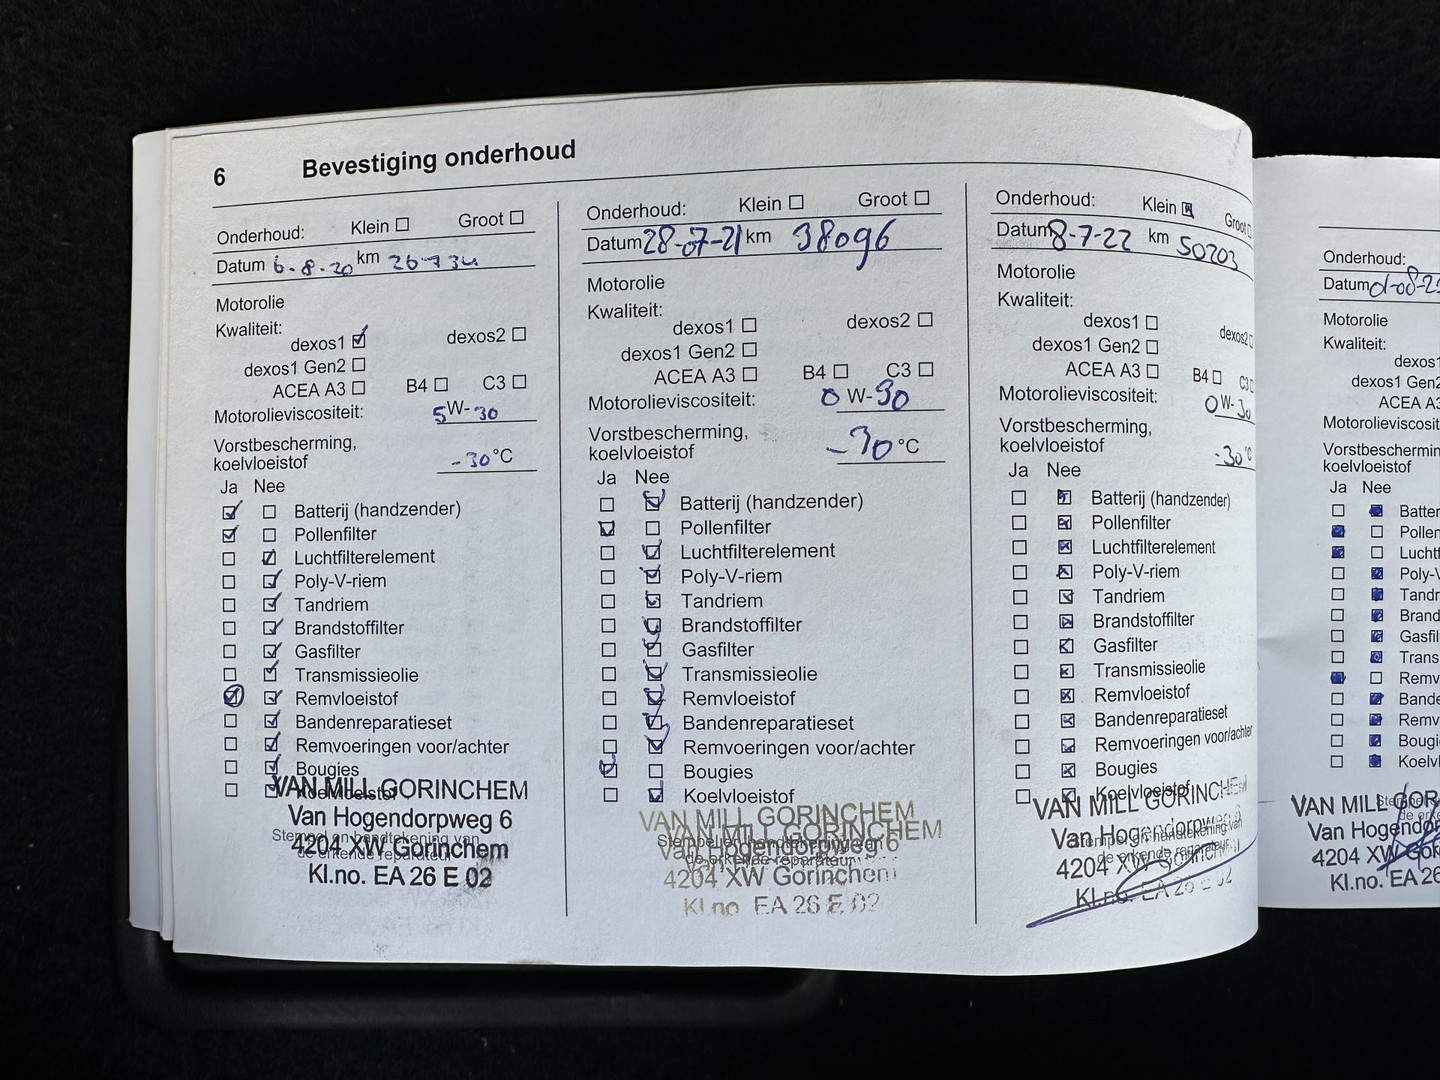 6 Bevestiging onderhoud
Onderhoud: Klein Groot
Datum 6-8-20 km 26734
Motorolie
Kwaliteit:
dexos1 dexos2
dexos1 Gen2
ACEA A3 B4 C3
Motorolieviscositeit: 5W-30
Vorstbescherming,
koelvloeistof -30 °C
Ja Nee
Batterij (handzender)
Pollenfilter
Luchtfilterelement
Poly-V-riem
Tandriem
Brandstoffilter
Gasfilter
Transmissieolie
Remvloeistof
Bandenreparatieset
Remvoeringen voor/achter
Bougies
Koelvloeistof
VAN MILL GORINCHEM
Van Hogendorpweg 6
Stempel en handtekening van
4204 XW Gorinchem
de erkende reparateur
Kl.no. EA 26 E 02
Onderhoud: Klein Groot
Datum 28-07-21 km 38096
Motorolie
Kwaliteit:
dexos1 dexos2
dexos1 Gen2
ACEA A3 B4 C3
Motorolieviscositeit: 0 W-30
Vorstbescherming,
koelvloeistof -30 °C
Ja Nee
Batterij (handzender)
Pollenfilter
Luchtfilterelement
Poly-V-riem
Tandriem
Brandstoffilter
Gasfilter
Transmissieolie
Remvloeistof
Bandenreparatieset
Remvoeringen voor/achter
Bougies
Koelvloeistof
VAN MILL GORINCHEM
VAN MILL GORINCHEM
Stempel en handtekening van
Van Hogendorpweg 6
de erkende reparateur
4204 XW Gorinchem
Kl.no EA 26 E 02
Onderhoud: Klein Groot
Datum 8-7-22 km 50203
Motorolie
Kwaliteit:
dexos1 dexos2
dexos1 Gen2
ACEA A3 B4 C3
Motorolieviscositeit: 0W-30
Vorstbescherming,
koelvloeistof -30 °C
Ja Nee
Batterij (handzender)
Pollenfilter
Luchtfilterelement
Poly-V-riem
Tandriem
Brandstoffilter
Gasfilter
Transmissieolie
Remvloeistof
Bandenreparatieset
Remvoeringen voor/achter
Bougies
Koelvloeistof
VAN MILL GORINCHEM
Van Hogendorpweg 6
Stempel en handtekening van
4204 XW Gorinchem
de erkende reparateur
Kl.no. EA 26 E 02
Onderhoud:
Datum
Motorolie
Kwaliteit:
dexos1
dexos1 Gen2
ACEA A3
Motorolieviscosit
Vorstbeschermin
koelvloeistof
Ja Nee
Batter
Pollen
Luchtf
Poly-V
Tandr
Brand
Gasfil
Trans
Remv
Bande
Remv
Bougi
Koelvl
VAN MILL GOR
Van Hogendor
4204 XW Gor
Kl.no. EA 26